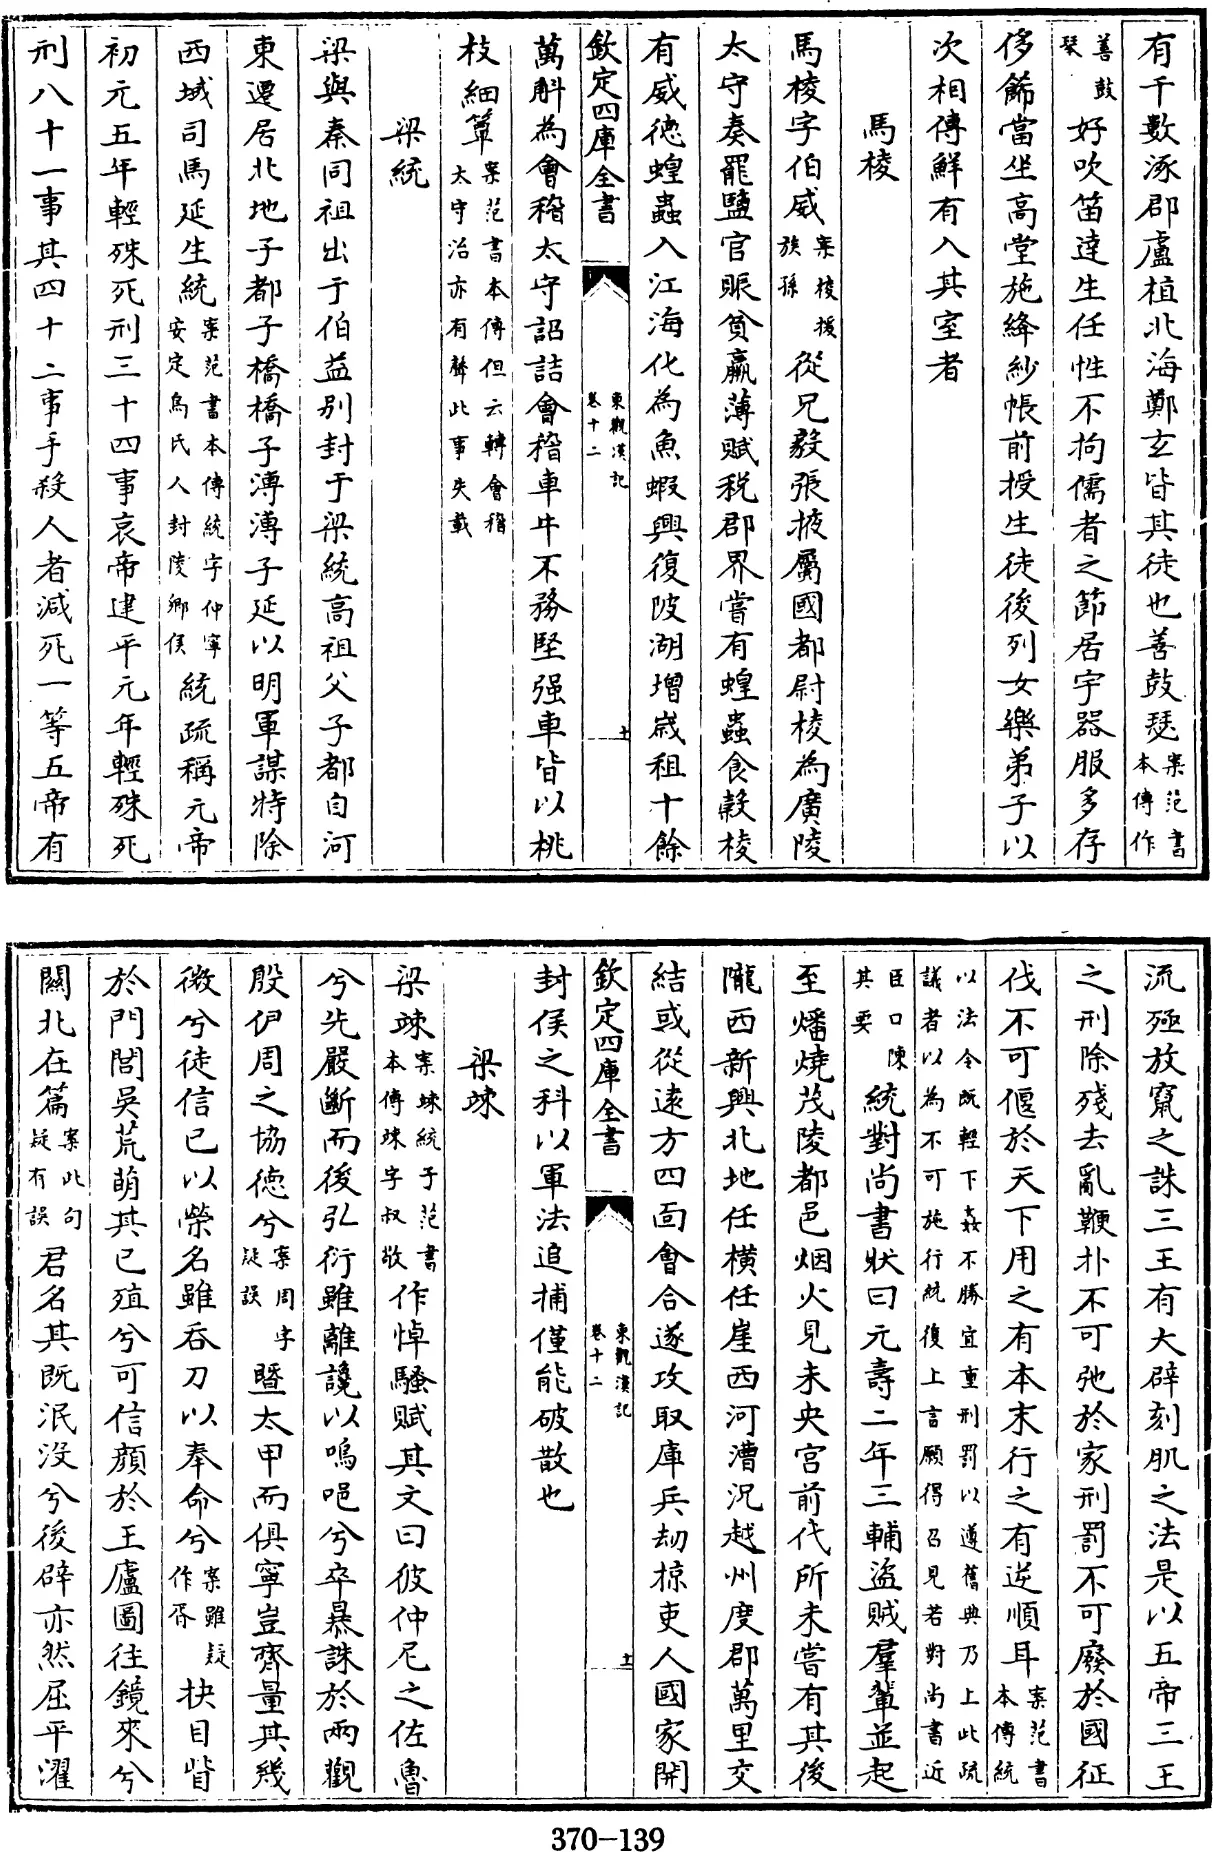 有千數涿郡盧植北海鄭玄皆其徒也善鼓瑟案范書本傳作
善鼓琴好吹笛達生任性不拘儒者之節居宇器服多存
侈飾當坐高堂施絳紗帳前授生徒後列女樂弟子以
次相傳鮮有入其室者
馬棱
馬棱字伯威案棱援族孫從兄毅張掖屬國都尉棱為廣陵
太守奏罷鹽官賑貧羸薄賦稅郡界嘗有蝗蟲食穀棱
有威德蝗蟲入江海化為魚蝦興復陂湖增歲租十餘
欽定四庫全書
東觀漢記
卷十二
十
萬斛為會稽太守詔詰會稽車牛不務堅强車皆以桃
枝細簟案范書本傳但云轉會稽太守治亦有聲此事失載
梁統
梁與秦同祖出于伯益別封于梁統高祖父子都自河
東遷居北地子都子橋橋子溥溥子延以明軍謀特除
西域司馬延生統案范書本傳統字仲寧安定烏氏人封陵鄉侯統疏稱元帝
初元五年輕殊死刑三十四事哀帝建平元年輕殊死
刑八十一事其四十二事手殺人者減死一等五帝有
流殛放竄之誅三王有大辟刻肌之法是以五帝三王
之刑除殘去亂鞭扑不可弛於家刑罰不可廢於國征
伐不可偃於天下用之有本末行之有逆順耳案范書本傳統
以法令既輕下姦不勝宜重刑罰以遵舊典乃上此疏議者以為不可施行統復上言願得召見若對尚書近
臣口陳其要統對尚書狀曰元壽二年三輔盜賊羣輩並起
至燔燒茂陵都邑烟火見未央宮前代所未嘗有其後
隴西新興北地任橫任崖西河漕況越州度郡萬里交
結或從遠方四面會合遂攻取庫兵劫掠吏人國家開
欽定四庫全書
東觀漢記
卷十二
十一
封侯之科以軍法追捕僅能破散也
梁竦
梁竦案竦統子范書本傳竦字叔敬作悼騷賦其文曰彼仲尼之佐魯
兮先嚴斷而後弘衍雖離讒以嗚唈兮卒暴誅於兩觀
殷伊周之協德兮案周字疑誤暨太甲而俱寧豈齊量其幾
微兮徒信己以榮名雖吞刀以奉命兮案雖疑作胥抉目眥
於門閭吳荒萌其已殖兮可信顔於王廬圖往鏡來兮
關北在篇案此句疑有誤君名其既泯没兮後辟亦然屈平濯
370-139